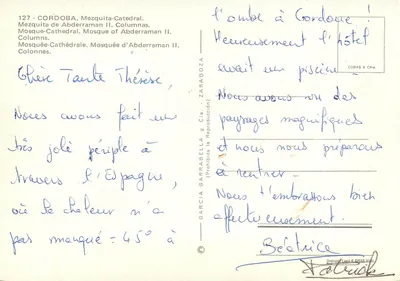 127 - CORDOBA, Mezquita-Catedral.
Mezquita de Abderraman II. Columnas.
Mosque-Cathedral. Mosque of Abderraman II.
Columns.
Mosquée-Cathédrale. Mosquée d'Abderraman II.
Colonnes.
Chère Tante Thérèse,
Nous avons fait un
très joli périple à
travers l'Espagne,
où la chaleur n'a
pas manqué - 45° à
GARCIA GARRABELLA y Cía. - ZARAGOZA
(Prohibida la reproducción)
l'ombe à Cordoue !
Heureusement l'hôtel
avait un piscine.
Nous avons vu des
paysages magnifiques
et nous nous préparons
à rentrer.
Nous t'embrassons bien
affectueusement.
Béatrice
Patrick